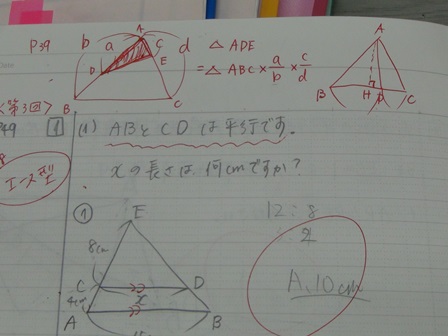 P39
b a A c d
D E
B C
△ADE
=△ABC×a/b×c/d
A
B H D C
<第3回>
P49 1 (1) ABとCDは平行です。
エース型
xの長さは何cmですか?
①
E
8cm
C D
4cm x
A B
12:8
A.10cm